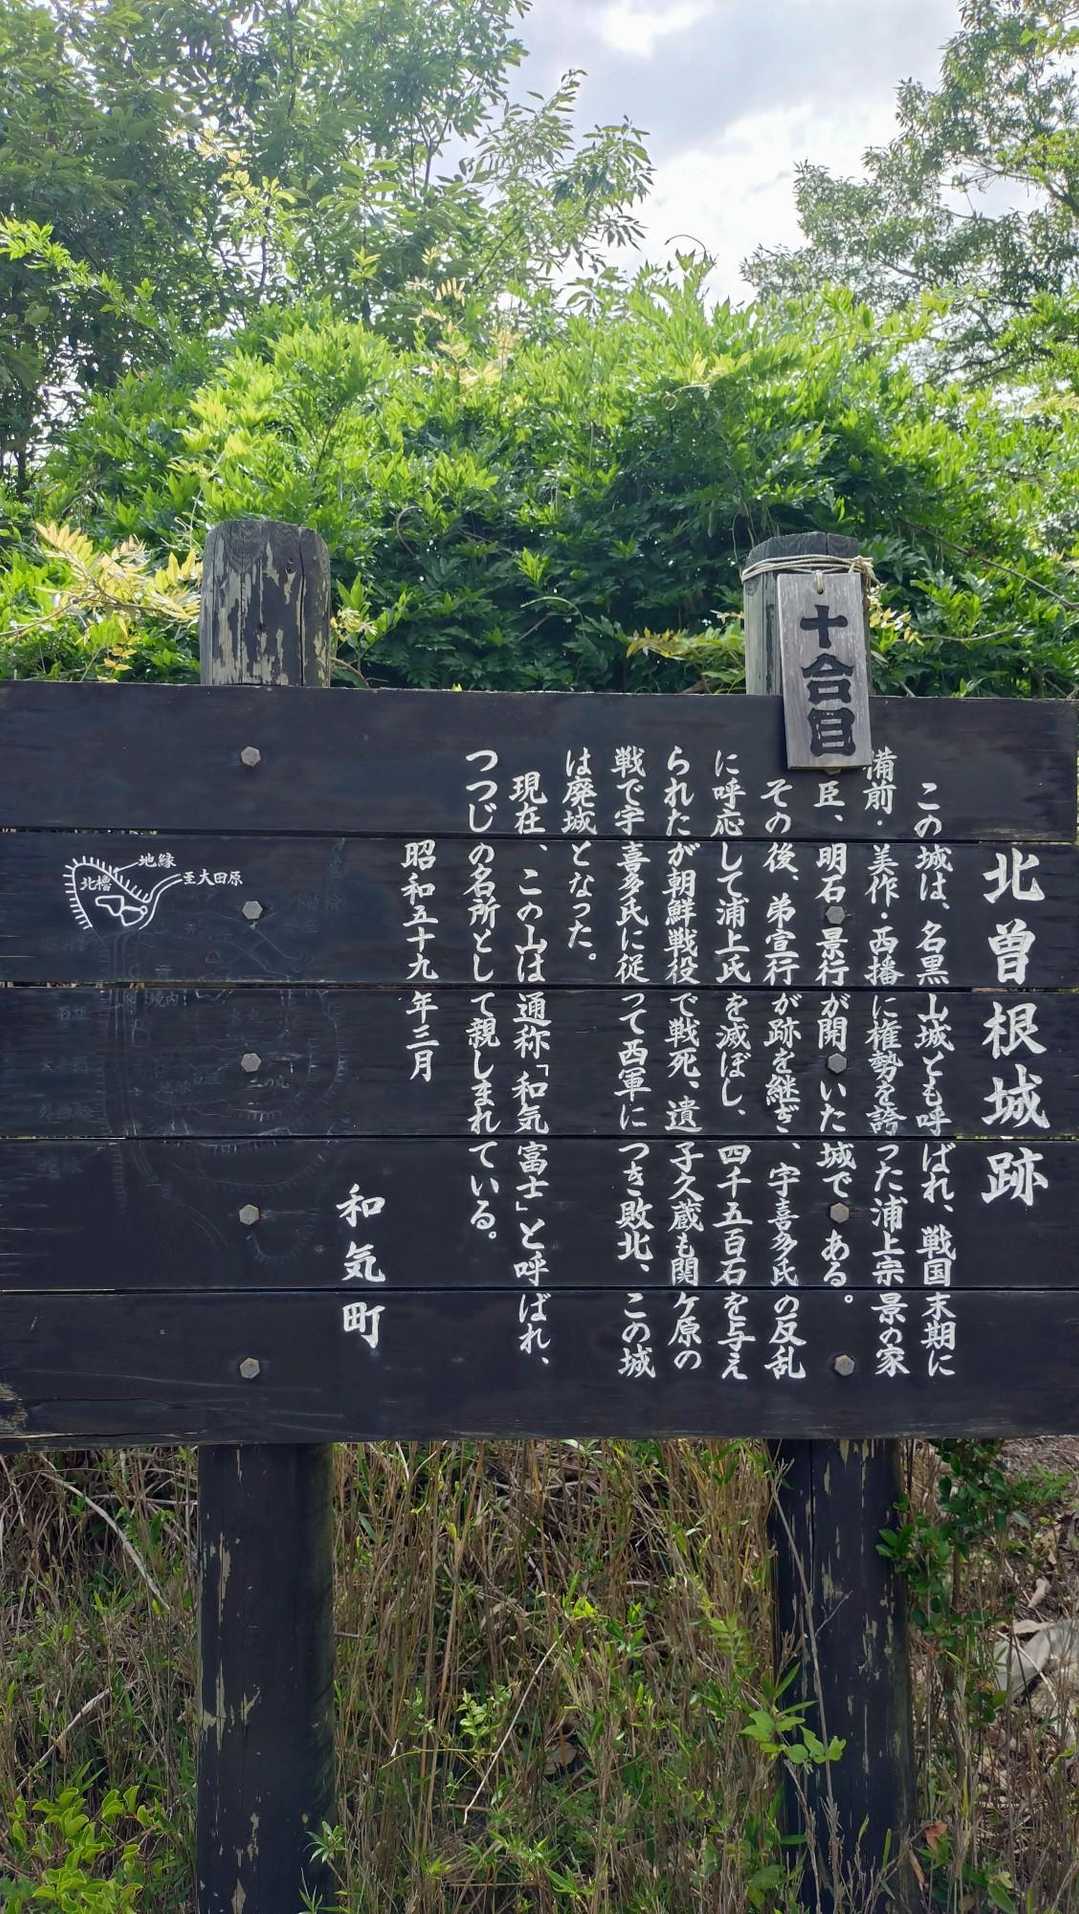 十合目
北曽根城跡
この城は、名黒山城とも呼ばれ、戦国末期に
備前・美作・西播に権勢を誇った浦上宗景の家
臣、明石景行が開いた城である。
その後、弟宣行が跡を継ぎ、宇喜多氏の反乱
に呼応して浦上氏を滅ぼし、四千五百石を与え
られたが朝鮮戦役で戦死、遺子久蔵も関ケ原の
戦で宇喜多氏に従って西軍につき敗北、この城
は廃城となった。
現在、この山は通称「和気富士」と呼ばれ、
つつじの名所として親しまれている。
昭和五十九年三月
和気町
地縁
至大田原
北櫓